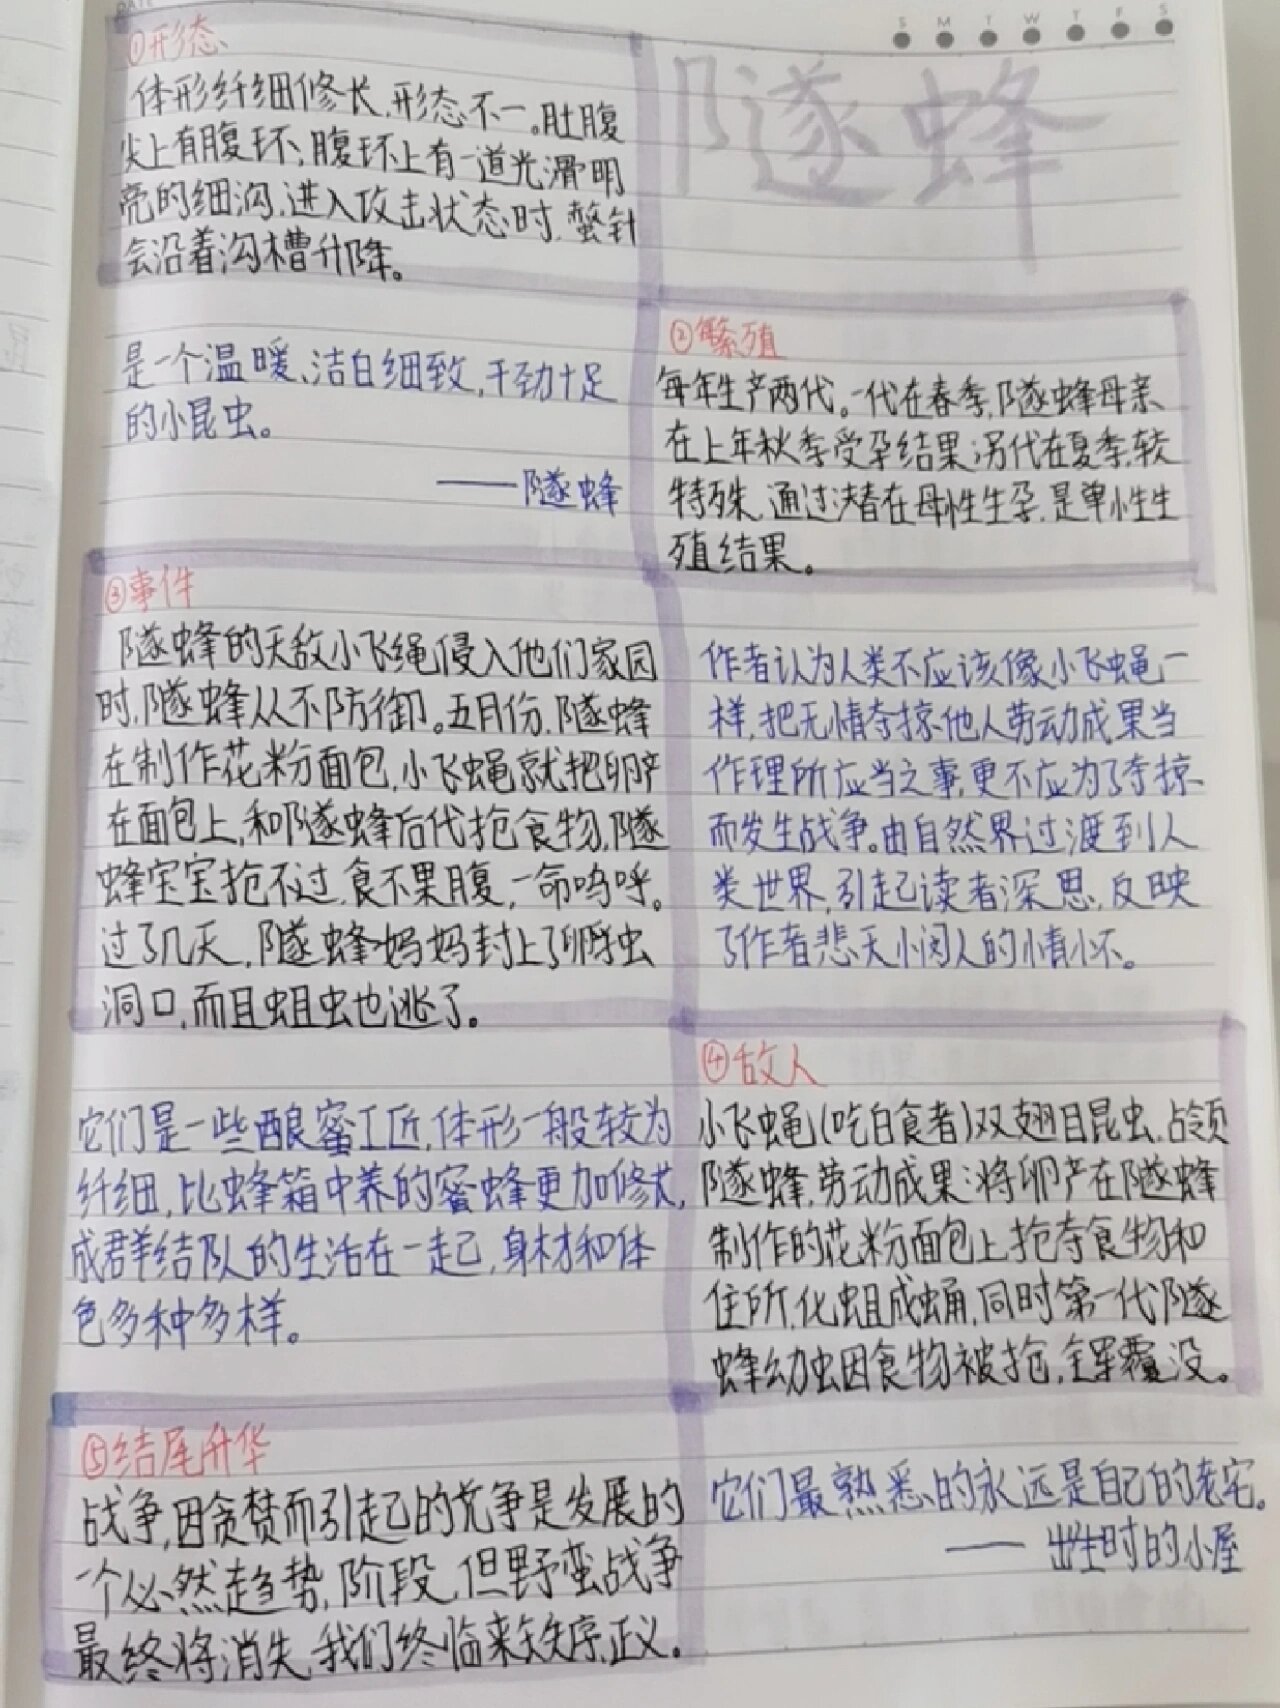 S M T W T F S
隧蜂
①形态
体形纤细修长,形态不一。肚腹
尖上有腹环,腹环上有一道光滑明
亮的细沟,进入攻击状态时,螫针
会沿着沟槽升降。
是一个温暖、洁白细致,干劲十足
的小昆虫。
——隧蜂
②繁殖
每年生产两代。一代在春季,隧蜂母亲
在上年秋季受孕结果;另代在夏季,较
特殊,通过潜在母性生孕,是单性生
殖结果。
③事件
隧蜂的天敌小飞绳侵入他们家园
时,隧蜂从不防御。五月份,隧蜂
在制作花粉面包,小飞蝇就把卵产
在面包上,和隧蜂后代抢食物,隧
蜂宝宝抢不过,食不果腹,一命呜呼。
过了几天,隧蜂妈妈封上了孵虫
洞口,而且蛆虫也逃了。
作者认为人类不应该像小飞蝇一
样,把无情夺掠他人劳动成果当
作理所应当之事,更不应为了夺掠
而发生战争。由自然界过渡到人
类世界,引起读者深思,反映
了作者悲天悯人的情怀。
它们是一些酿蜜工匠,体形一般较为
纤细,比蜂箱中养的蜜蜂更加修长,
成群结队的生活在一起,身材和体
色多种多样。
④敌人
小飞蝇(吃白食者)双翅目昆虫,占领
隧蜂,劳动成果:将卵产在隧蜂
制作的花粉面包上,抢夺食物和
住所,化蛆成蛹,同时第一代隧
蜂幼虫因食物被抢,全军覆没。
⑤结尾升华
战争,因贪婪而引起的竞争是发展的
一个必然趋势,阶段,但野蛮战争
最终将消失,我们终临来秩序,正义。
它们最熟悉的永远是自己的老宅。
—— 出生时的小屋